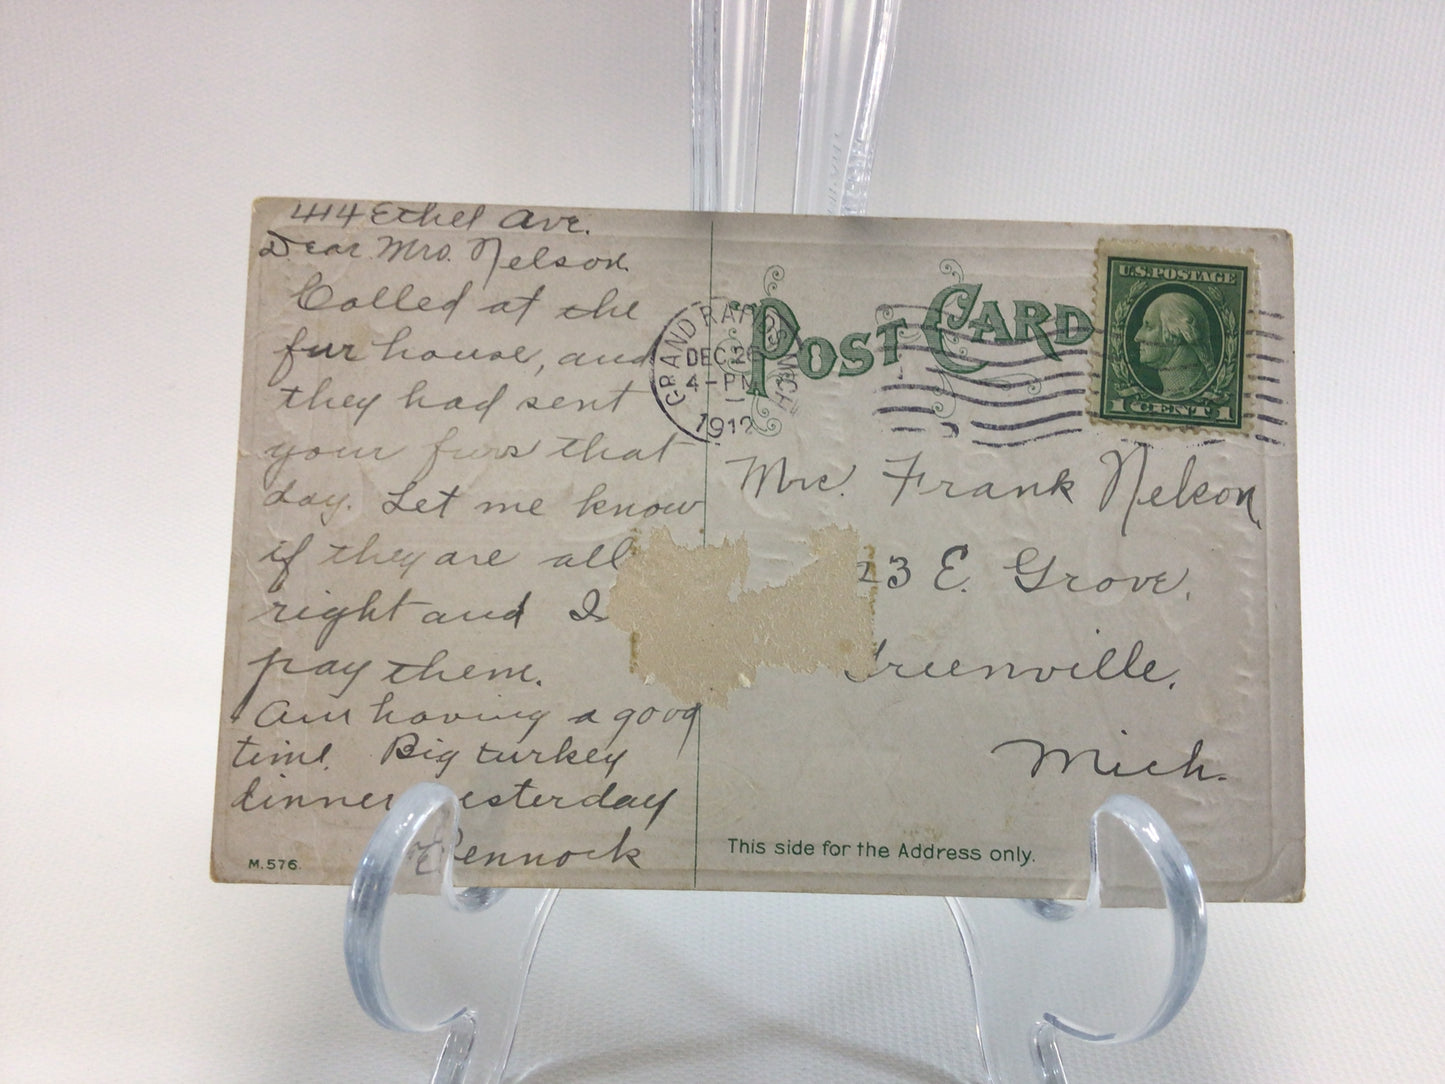 414 Ethel Ave.
Dear Mrs. Nelson.
Called at the
fur house, and
they had sent
your furs that
day. Let me know
if they are all
right and I
pay them.
Am having a good
time. Big turkey
dinner yesterday
Pennock
M.576.
POST CARD
GRAND RAPIDS, MICH.
DEC 26
4-PM
1912
U.S. POSTAGE
1 CENT 1
Mrs. Frank Nelson,
23 E. Grove.
Greenville,
Mich.
This side for the Address only.